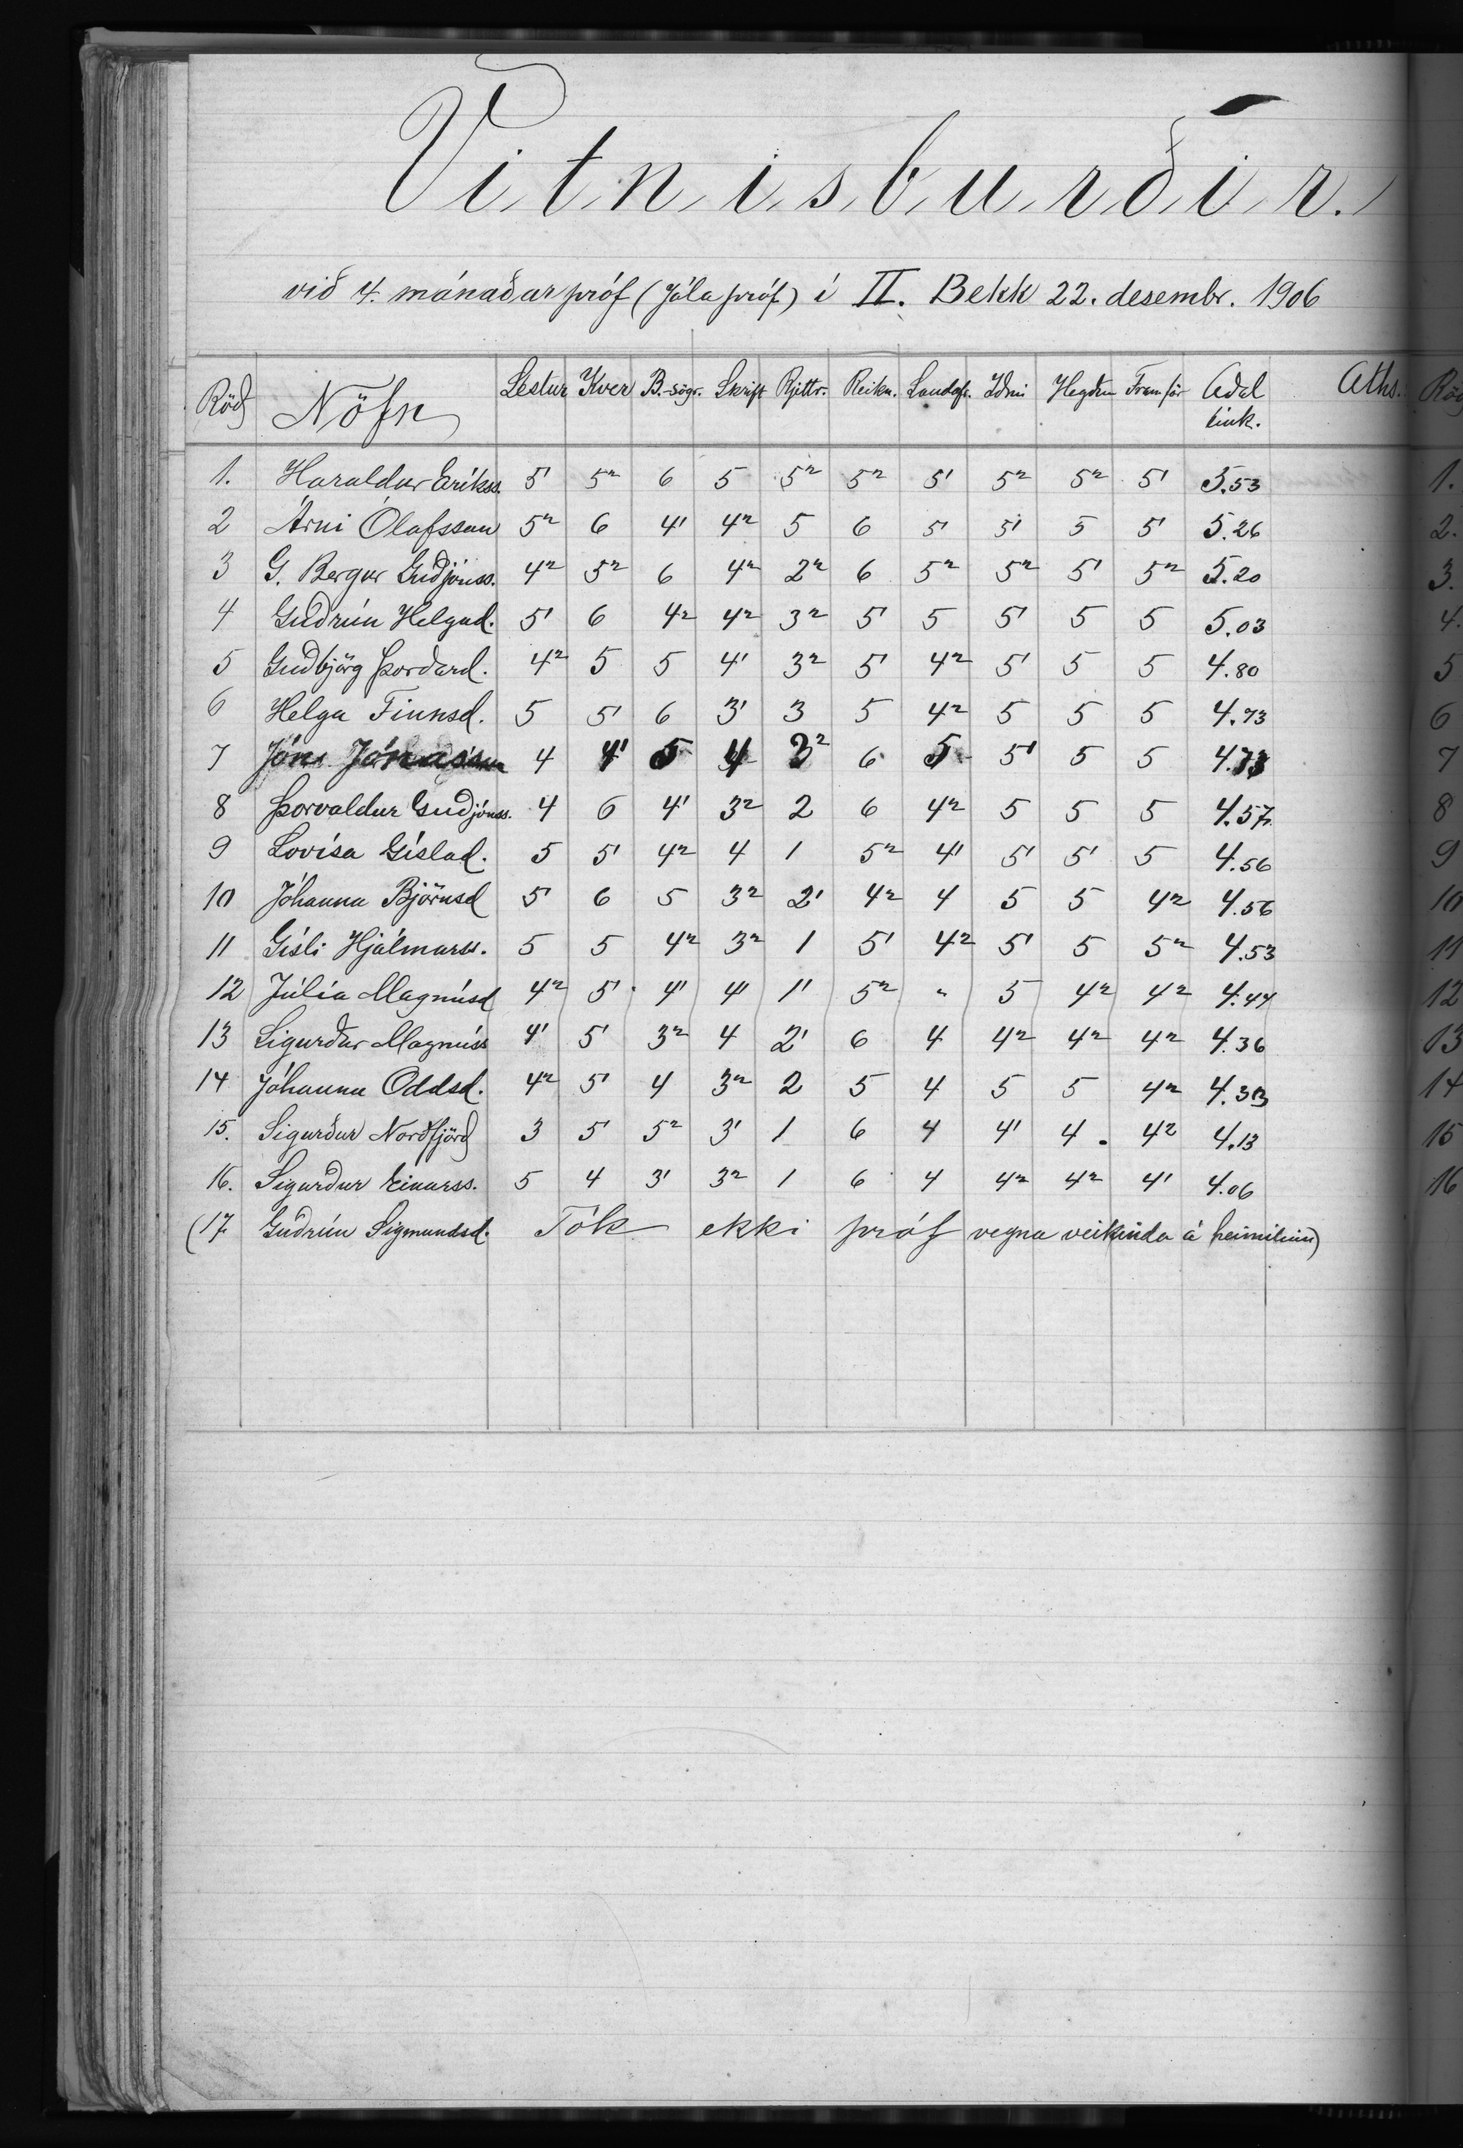 Vitnisburðir.
við 4. mánaðarpróf (Jólapróf) í II. Bekk 22. desembr. 1906
Röð Nöfn Lestur Kver B.-sögr. Skrift Rjettr. Reikn. Landafr. Iðni Hegðun Framför Aðal eink. Aths.
1. Haraldur Eríkss. 5' 5" 6 5 5" 5" 5' 5" 5" 5' 5.53
2 Árni Ólafsson 5" 6 4' 4" 5 6 5' 5' 5 5' 5.26
3 G. Bergur Guðjónss. 4" 5" 6 4" 2" 6 5" 5" 5' 5" 5.20
4 Guðrún Helgad. 5' 6 4" 4" 3" 5' 5 5' 5 5 5.03
5 Guðbjörg Þorðard. 4" 5 5 4' 3" 5' 4" 5' 5 5 4.80
6 Helga Finnsd. 5 5' 6 3' 3 5 4" 5 5 5 4.73
7 Jón Jónasson 4 4' 5 4 3" 6 5 5' 5 5 4.73
8 Þorvaldur Guðjónss. 4 6 4' 3" 2 6 4" 5 5 5 4.57
9 Lovísa Gíslad. 5 5' 4" 4 1 5" 4' 5' 5' 5 4.56
10 Jóhanna Björnsd 5' 6 5 3" 2' 4" 4 5 5 4" 4.56
11 Gísli Hjálmarss. 5 5 4" 3" 1 5' 4" 5' 5 5" 4.53
12 Júlía Magnúsd 4" 5' 4' 4' 1' 5" " 5 4" 4" 4.44
13 Sigurður Magnúss 4' 5' 3" 4 2' 6 4 4" 4" 4" 4.36
14 Jóhanna Oddsd. 4" 5' 4 3" 2 5 4 5 5 4" 4.33
15. Sigurður Norðfjörð 3 5' 5" 3' 1 6 4 4' 4. 4" 4.13
16. Sigurður Einarss. 5 4 3' 3" 1 6 4 4" 4" 4' 4.06
(17 Guðrún Sigmundsd. Tók ekki próf vegna veikinda á heimilinu)